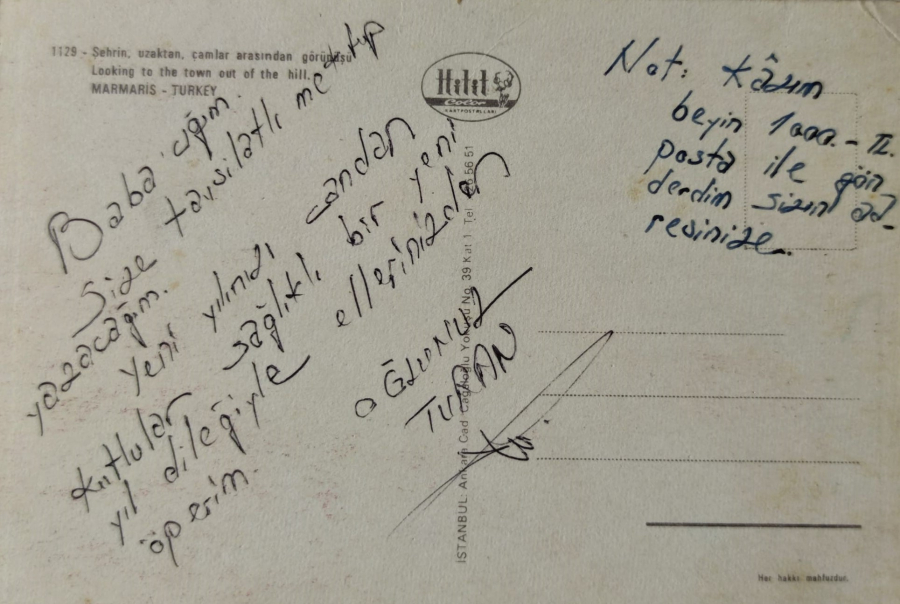 1129 - Şehrin, uzaktan, çamlar arasından görünüşü
Looking to the town out of the hill.
MARMARİS - TURKEY
Hitit
Color
KARTPOSTALLARI
Babacığım.
Size tafsilatlı mektup
yazacağım.
Yeni yılınızı candan
kutlular sağlıklı bir yeni
yıl dileğiyle ellerinizden
öperim.
OĞLUNUZ
TURAN
Not: Kâzım
beyin 1000.- TL.
posta ile gön
derdim sizin ad
resinize.
İSTANBUL Ankara Cad. Cağaloğlu Yokuşu No. 39 Kat 1 Tel 56 51
Her hakkı mahfuzdur.